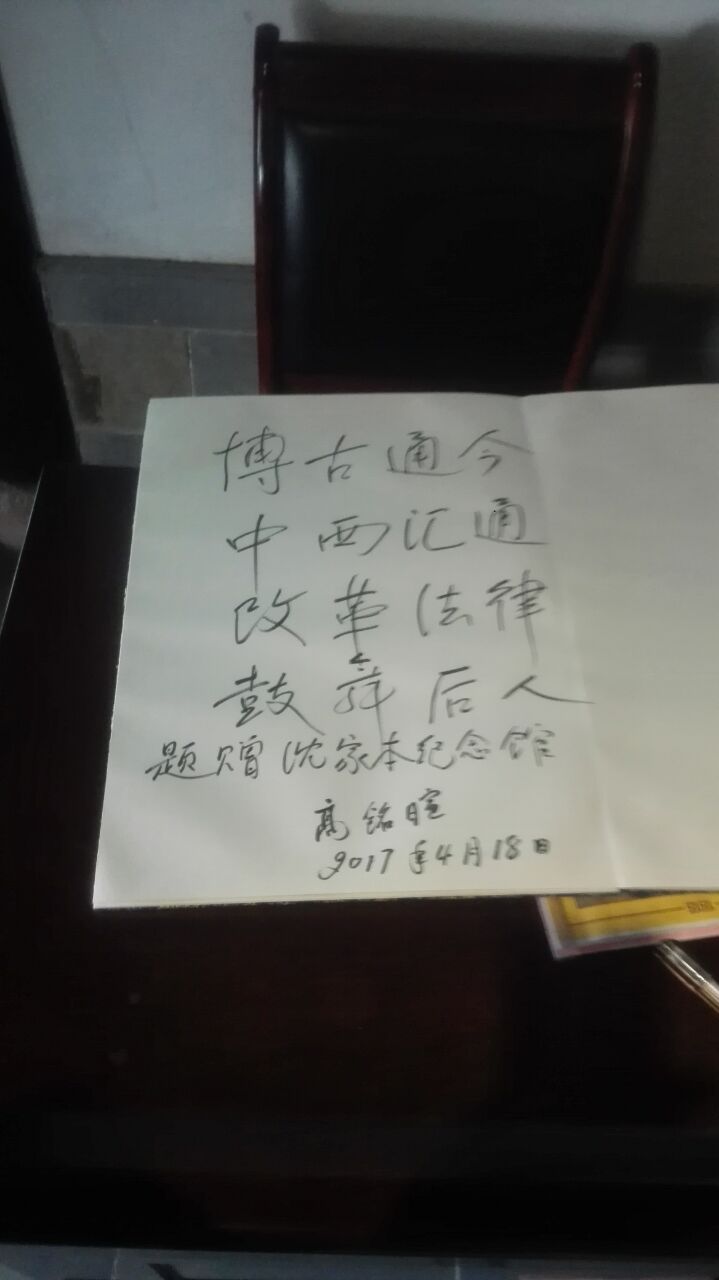 博古通今
中西汇通
改革法律
鼓舞后人
题赠沈家本纪念馆
高铭暄
2017年4月18日